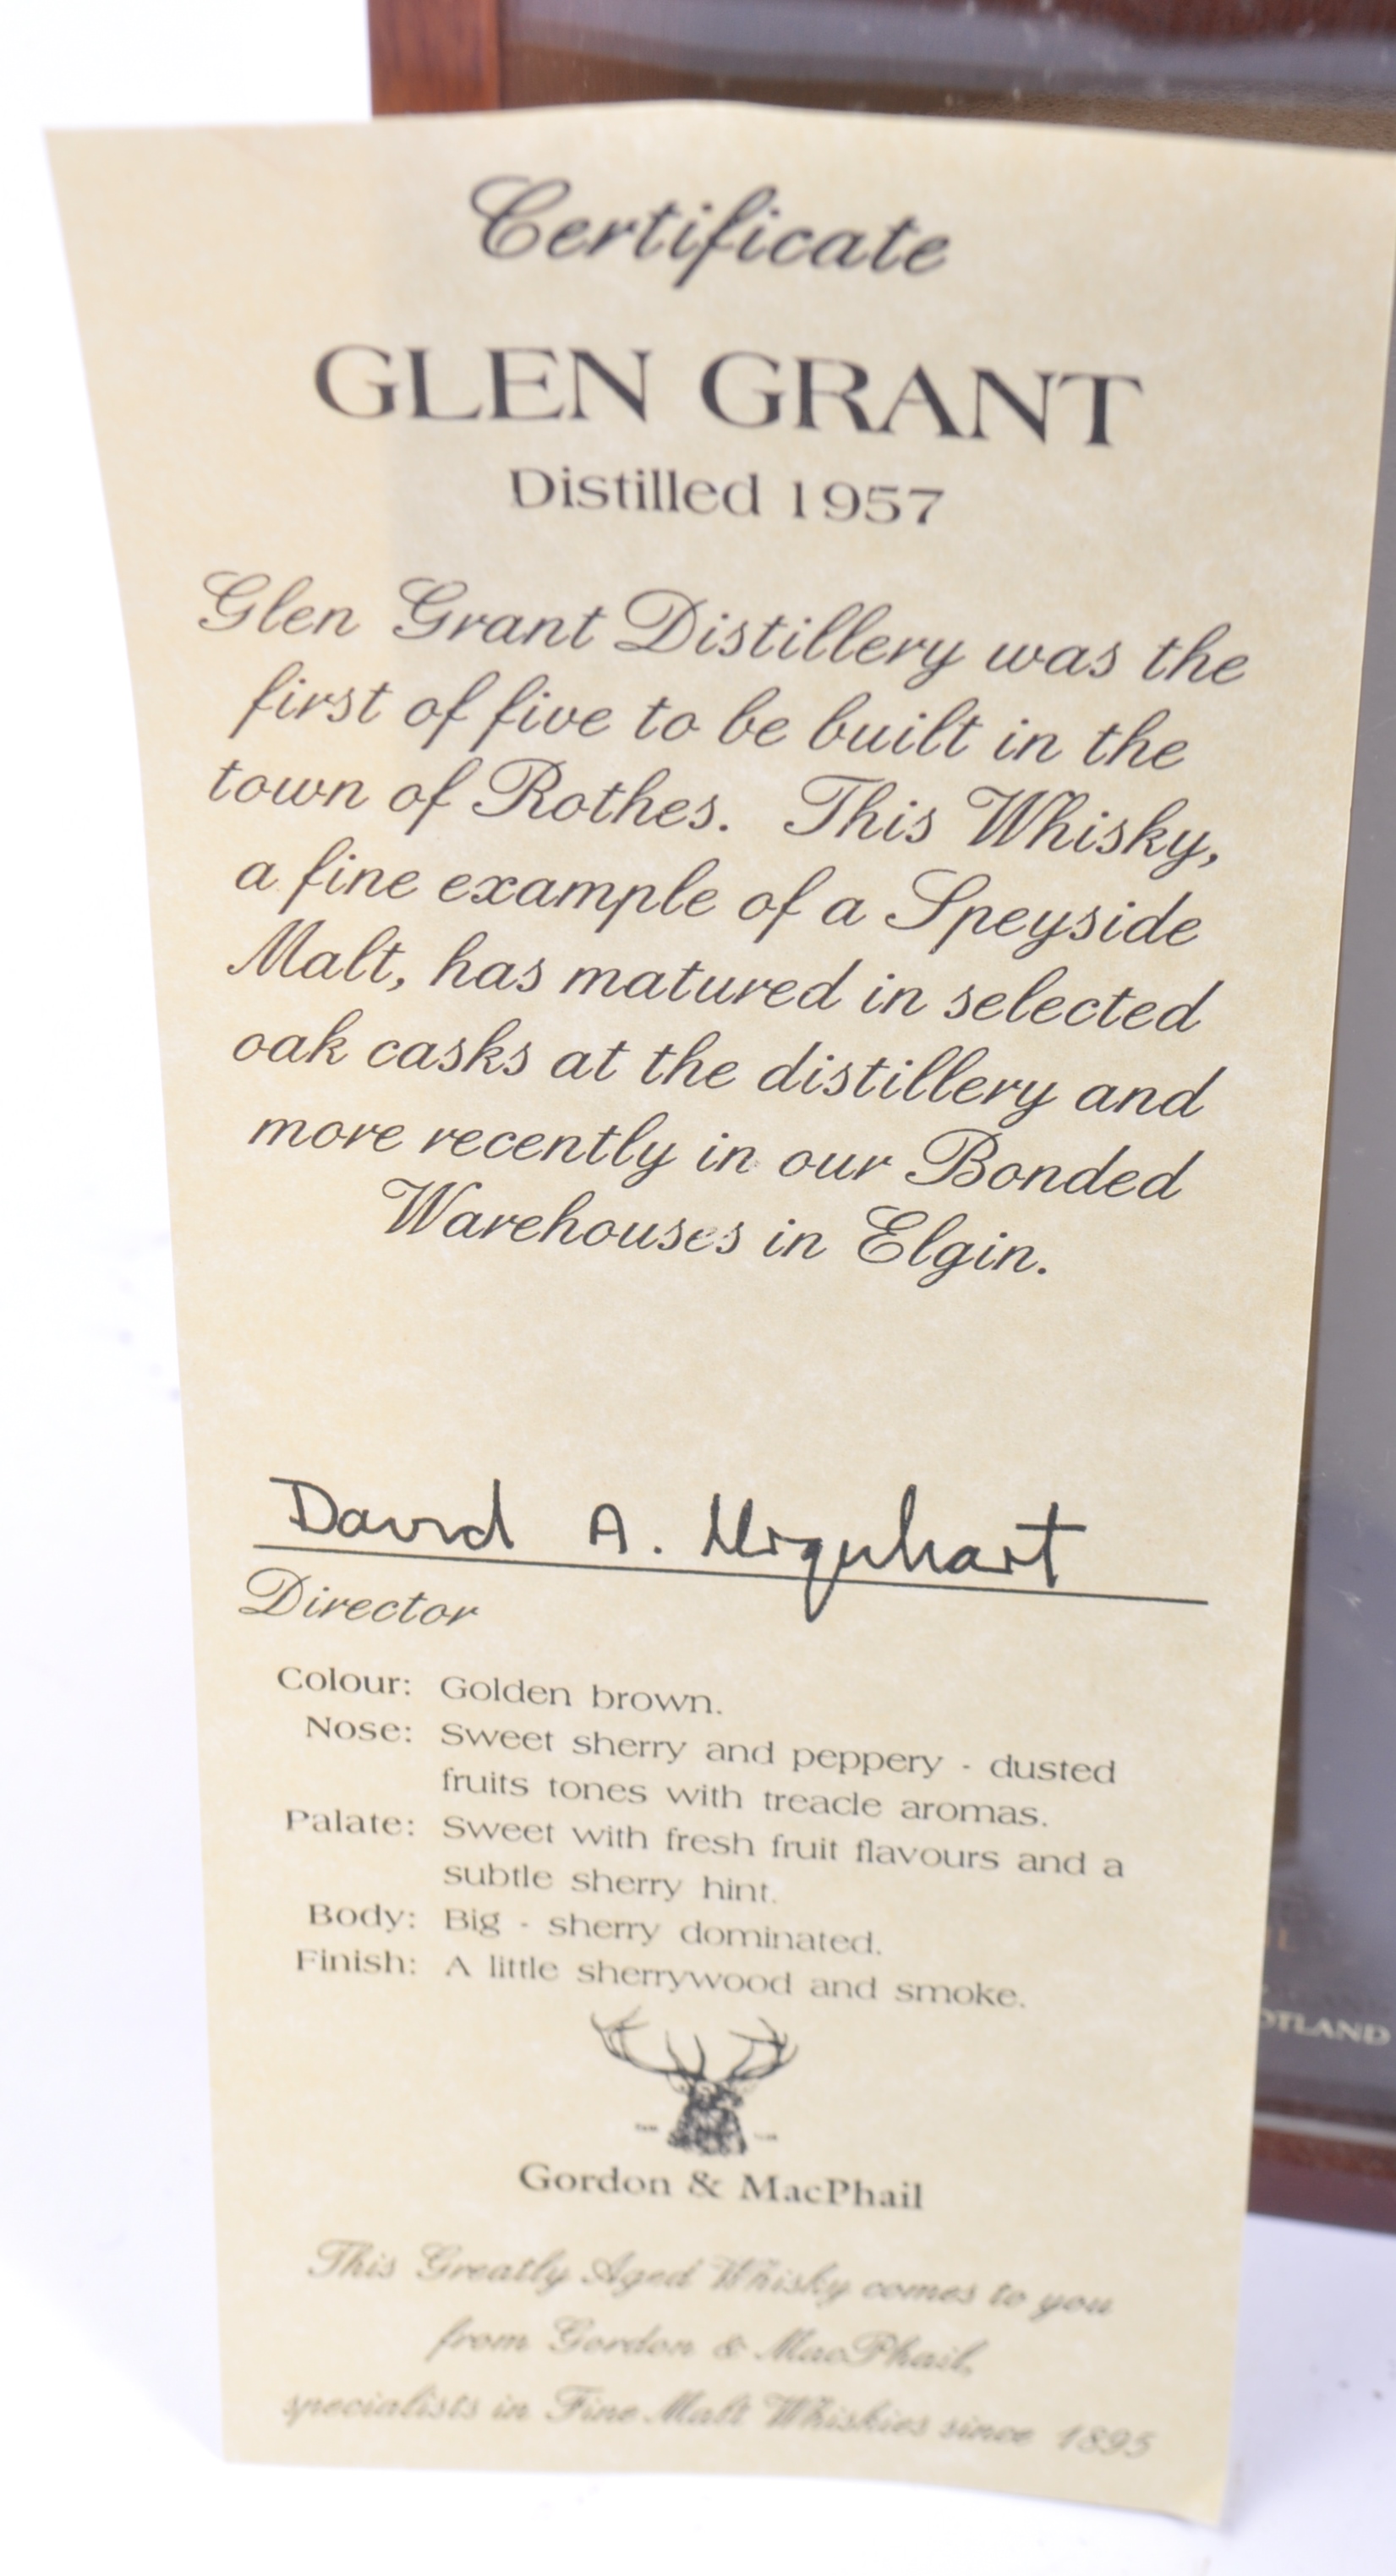 Certificate
GLEN GRANT
Distilled 1957
Glen Grant Distillery was the
first of five to be built in the
town of Rothes. This Whisky,
a fine example of a Speyside
Malt, has matured in selected
oak casks at the distillery and
more recently in our Bonded
Warehouses in Elgin.
David A. Urquhart
Director
Colour: Golden brown.
Nose: Sweet sherry and peppery - dusted
fruits tones with treacle aromas.
Palate: Sweet with fresh fruit flavours and a
subtle sherry hint.
Body: Big - sherry dominated.
Finish: A little sherrywood and smoke.
Gordon & MacPhail
This Greatly Aged Whisky comes to you
from Gordon & MacPhail,
specialists in Fine Malt Whiskies since 1895